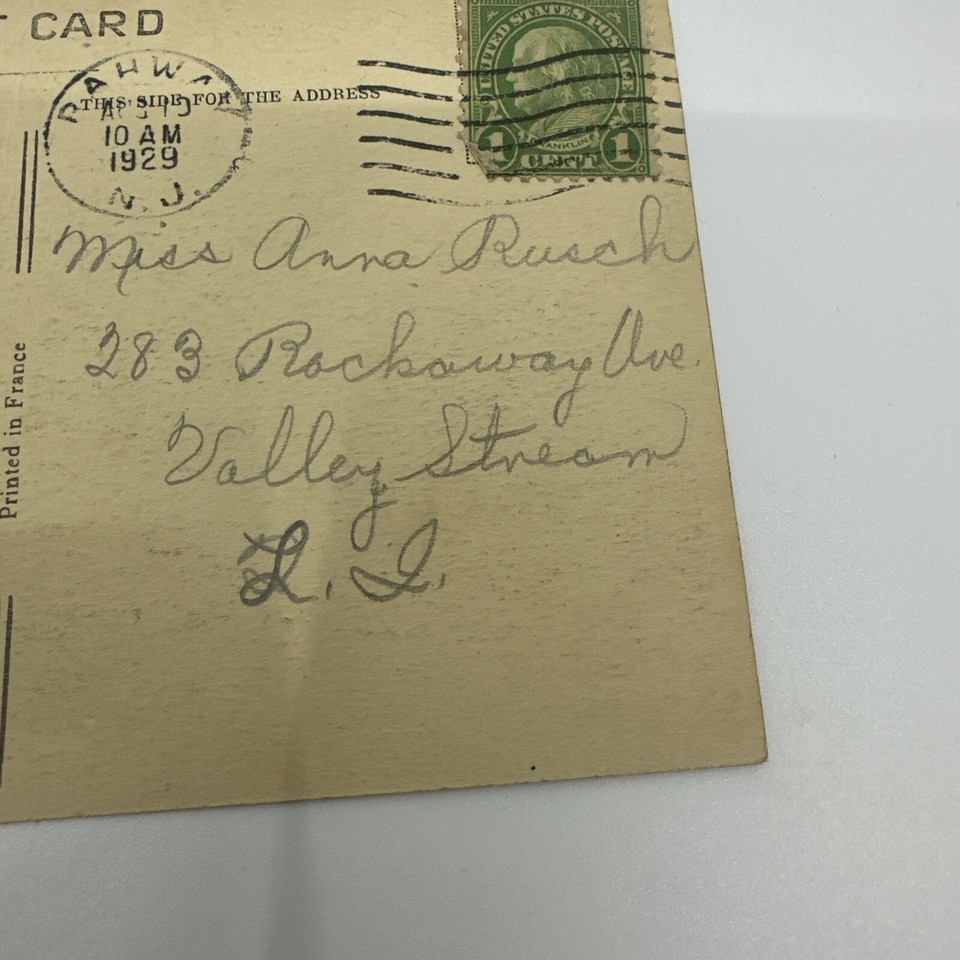 CARD
THIS SIDE FOR THE ADDRESS
RAHWAY
10 AM
1929
N. J.
UNITED STATES POSTAGE
FRANKLIN
1 CENT 1
Miss Anna Rusch
283 Rockaway Ave.
Valley Stream
L. I.
Printed in France